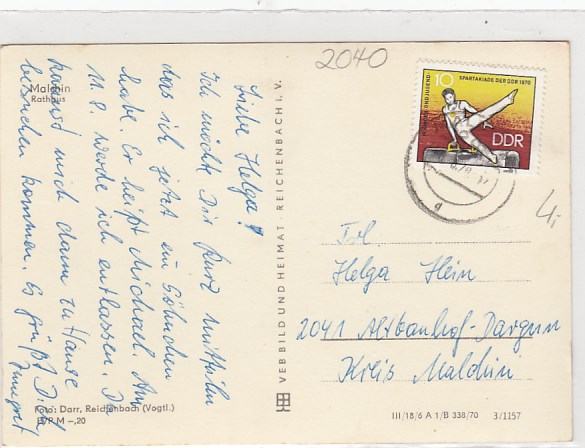 2040
Malchin
Rathaus
Liebe Helga!
Ich möchte Dir kurz mitteilen
das ich jetzt ein Söhnchen
habe. Er heißt Michael. Am
11. 8. werde ich entlassen. Du
kannst mich dann zu Hause
besuchen kommen. Es grüßt Dich
Foto: Darr, Reichenbach (Vogtl.)
-,20
VEB BILD UND HEIMAT REICHENBACH I. V.
10
SPARTAKIADE DER DDR 1970
KINDER- UND JUGEND-
DDR
Frl.
Helga Hein
2041 Altbauhof-Dargun
Kreis Malchin
III/18/6 A 1/B 338/70 3/1157